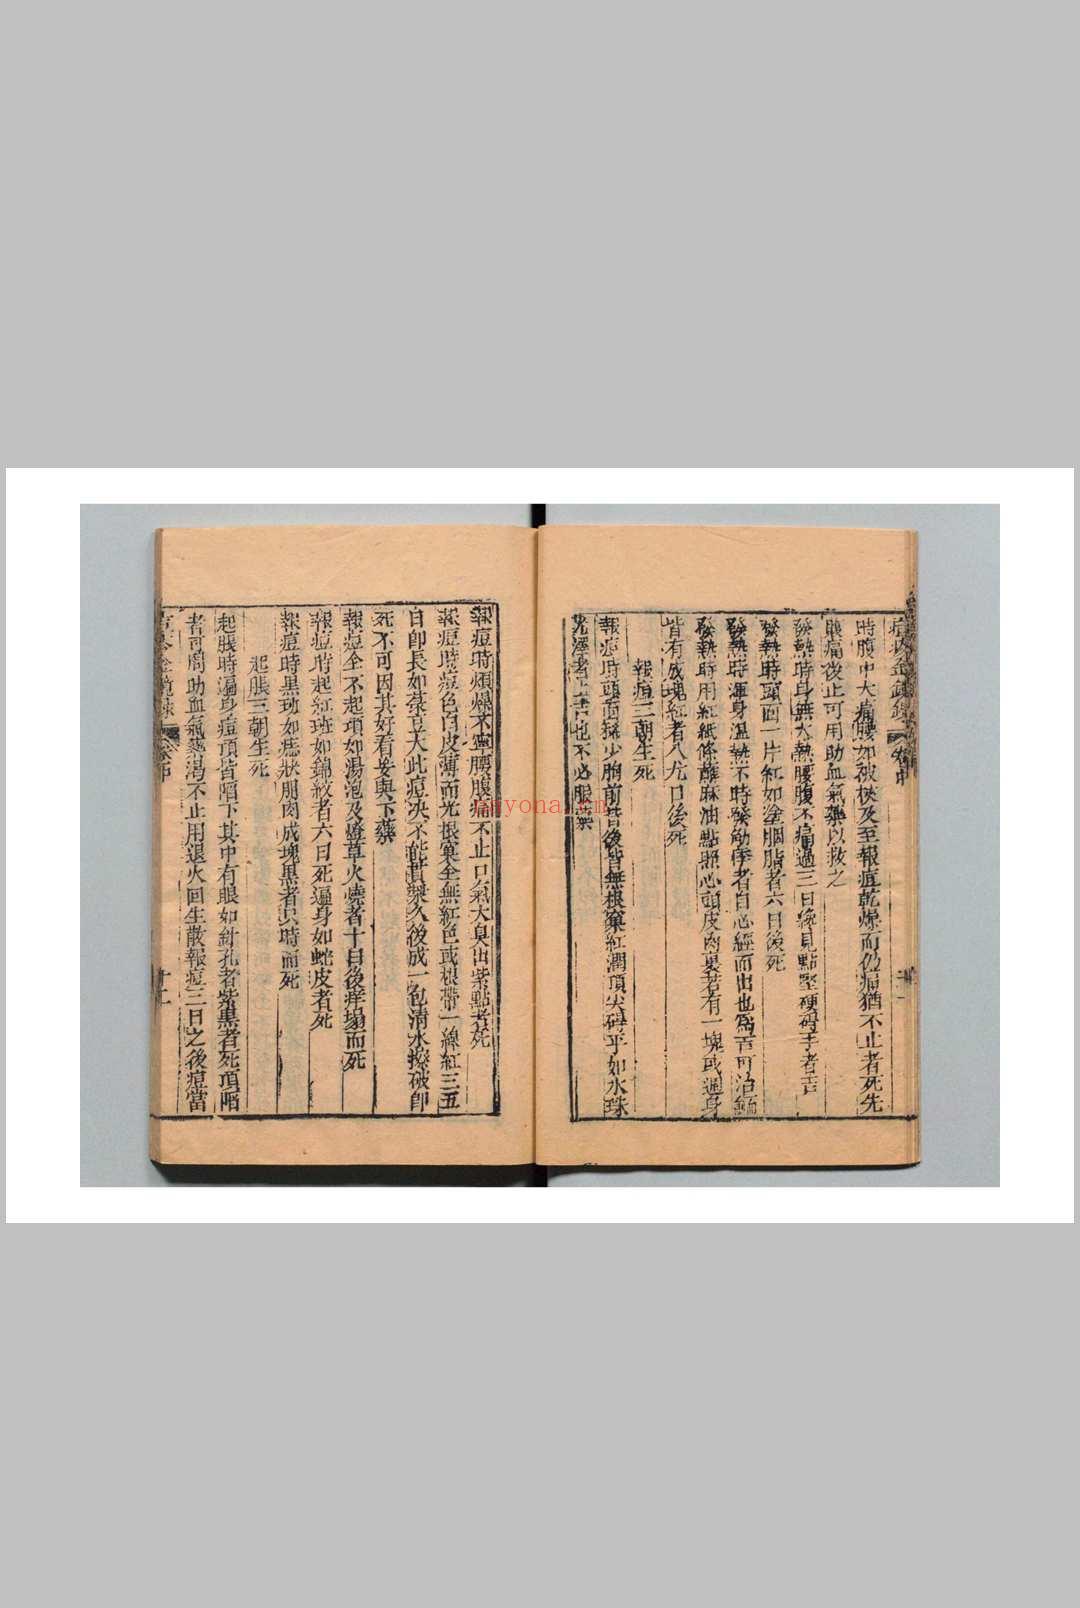 時腹中大痛腰如被杖及至報痘乾燥而仍痛猶不止者死先
腹痛後止可用助血氣藥以救之
發熱時身無大熱腰腹不痛過三日纔見點堅硬碍手者吉
發熱時頭面一片紅如塗胭脂者六日後死
發熱時渾身溫熱不時發驚者自心經而出也為吉可治
發熱時用紅紙條蘸麻油點照心頭皮肉裏若有一塊或遍身
皆有成塊紅者八九日後死
報痘三朝生死
報痘時頭面稀少胸前背後皆無根窠紅潤頂尖碍手如水珠
光澤者上吉也不必服藥
報痘時煩燥不寧腰腹痛不止口氣大臭出紫點者死
報痘時痘色白皮薄而光根窠全無紅色或根帶一線紅三五
日即長如菉豆大此痘决不能貫漿久後成一包清水擦破即
死不可因其好看妄與下藥
報痘全不起項如湯泡及燈草火燒者十日後痒塌而死
報痘時起紅斑如錦紋者六日死遍身如蛇皮者死
報痘時黑斑如痣狀肌肉成塊黑者只時而死
起脹三朝生死
起脹時遍身痘頂皆陷下其中有眼如針孔者紫黑者死頂陷
者可用助血氣藥渴不止用退火回生散報痘三日之後痘當
卷中
十二